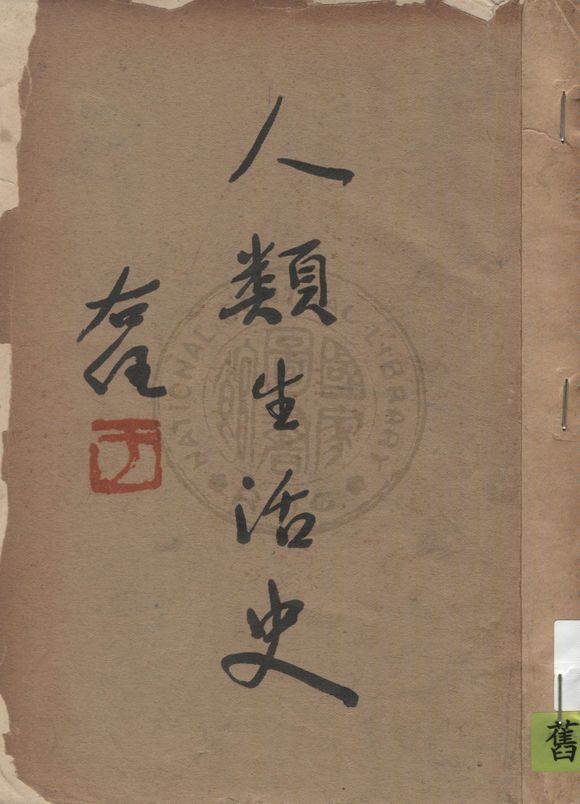 人類生活史
右任
NATIONAL CENTRAL LIBRARY
國家圖書館
舊